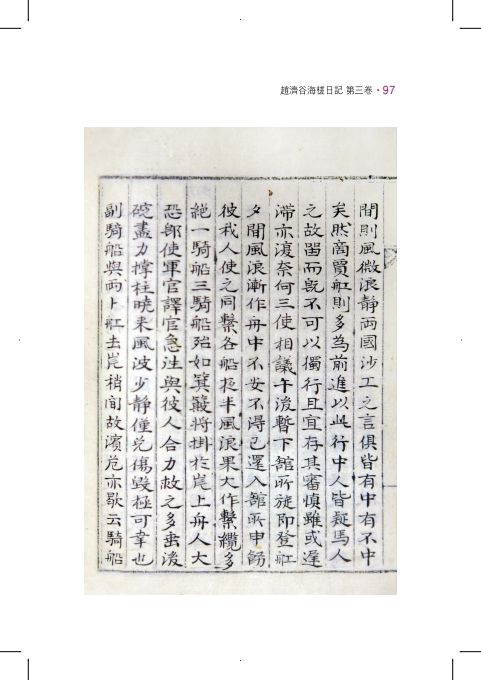 趙濟谷海槎日記 第三卷 · 97
間則風微浪静両國沙工之言俱皆有中有不中
矣然商買舡則多為前進以此行中人皆疑馬人
之故留而既不可以獨行且宜存其審慎雖或遅
滞亦復奈何三使相議午後暫下舘所旋即登舡
夕間風浪漸作舟中不安不得已還入舘所申飭
彼我人使之同繫各船夜半風浪果大作繫纜多
絶一騎船三騎船殆如箕簸將掛於岸上舟人大
恐部使軍官譯官急往與彼人合力救之多出後
碇盡力撑柱曉来風波少静僅免傷毀極可幸也
副騎船與両卜舡出岸稍間故濱危亦歇云騎船